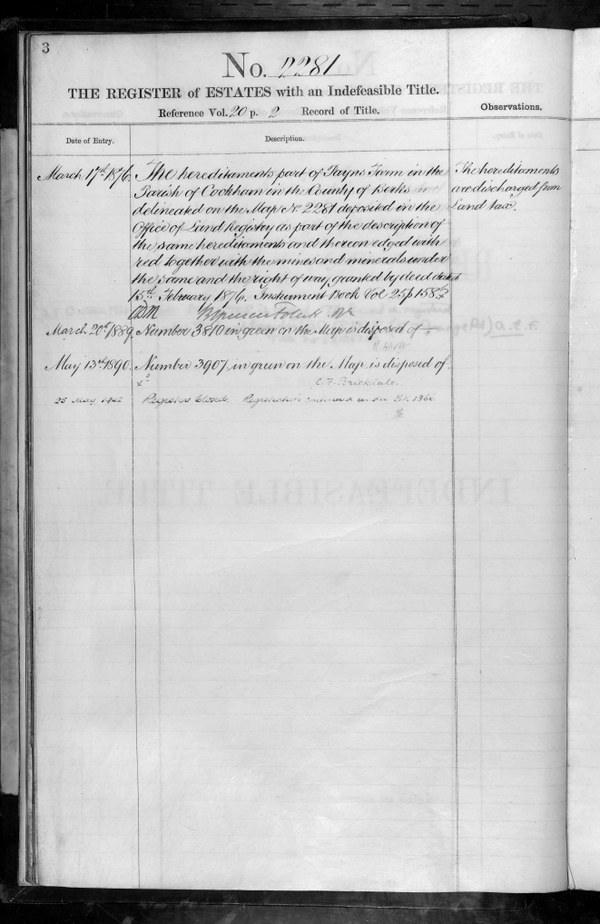 3
No. 2281
THE REGISTER of ESTATES with an Indefeasible Title.
Reference Vol. 20 p. 2 Record of Title.
Observations.
Date of Entry.
Description.
March 17th 1876.
The hereditaments part of Fayns Farm in the
Parish of Cookham in the County of Berks
delineated on the Map No. 2281 deposited in the
Office of Land Registry as part of the description of
the same hereditaments and thereon edged with
red together with the mines and minerals under
the same and the right of way granted by deed dated
15th February 1876. Instrument Book Vol 25 p 158.
The hereditaments
are discharged from
Land tax.
March 20th 1889.
Number 3810 in green on the Map is disposed of
May 13th 1890.
Number 3907 in green on the Map is disposed of.
C. F. Brickdale.
23 May 1902
Register closed. Registration